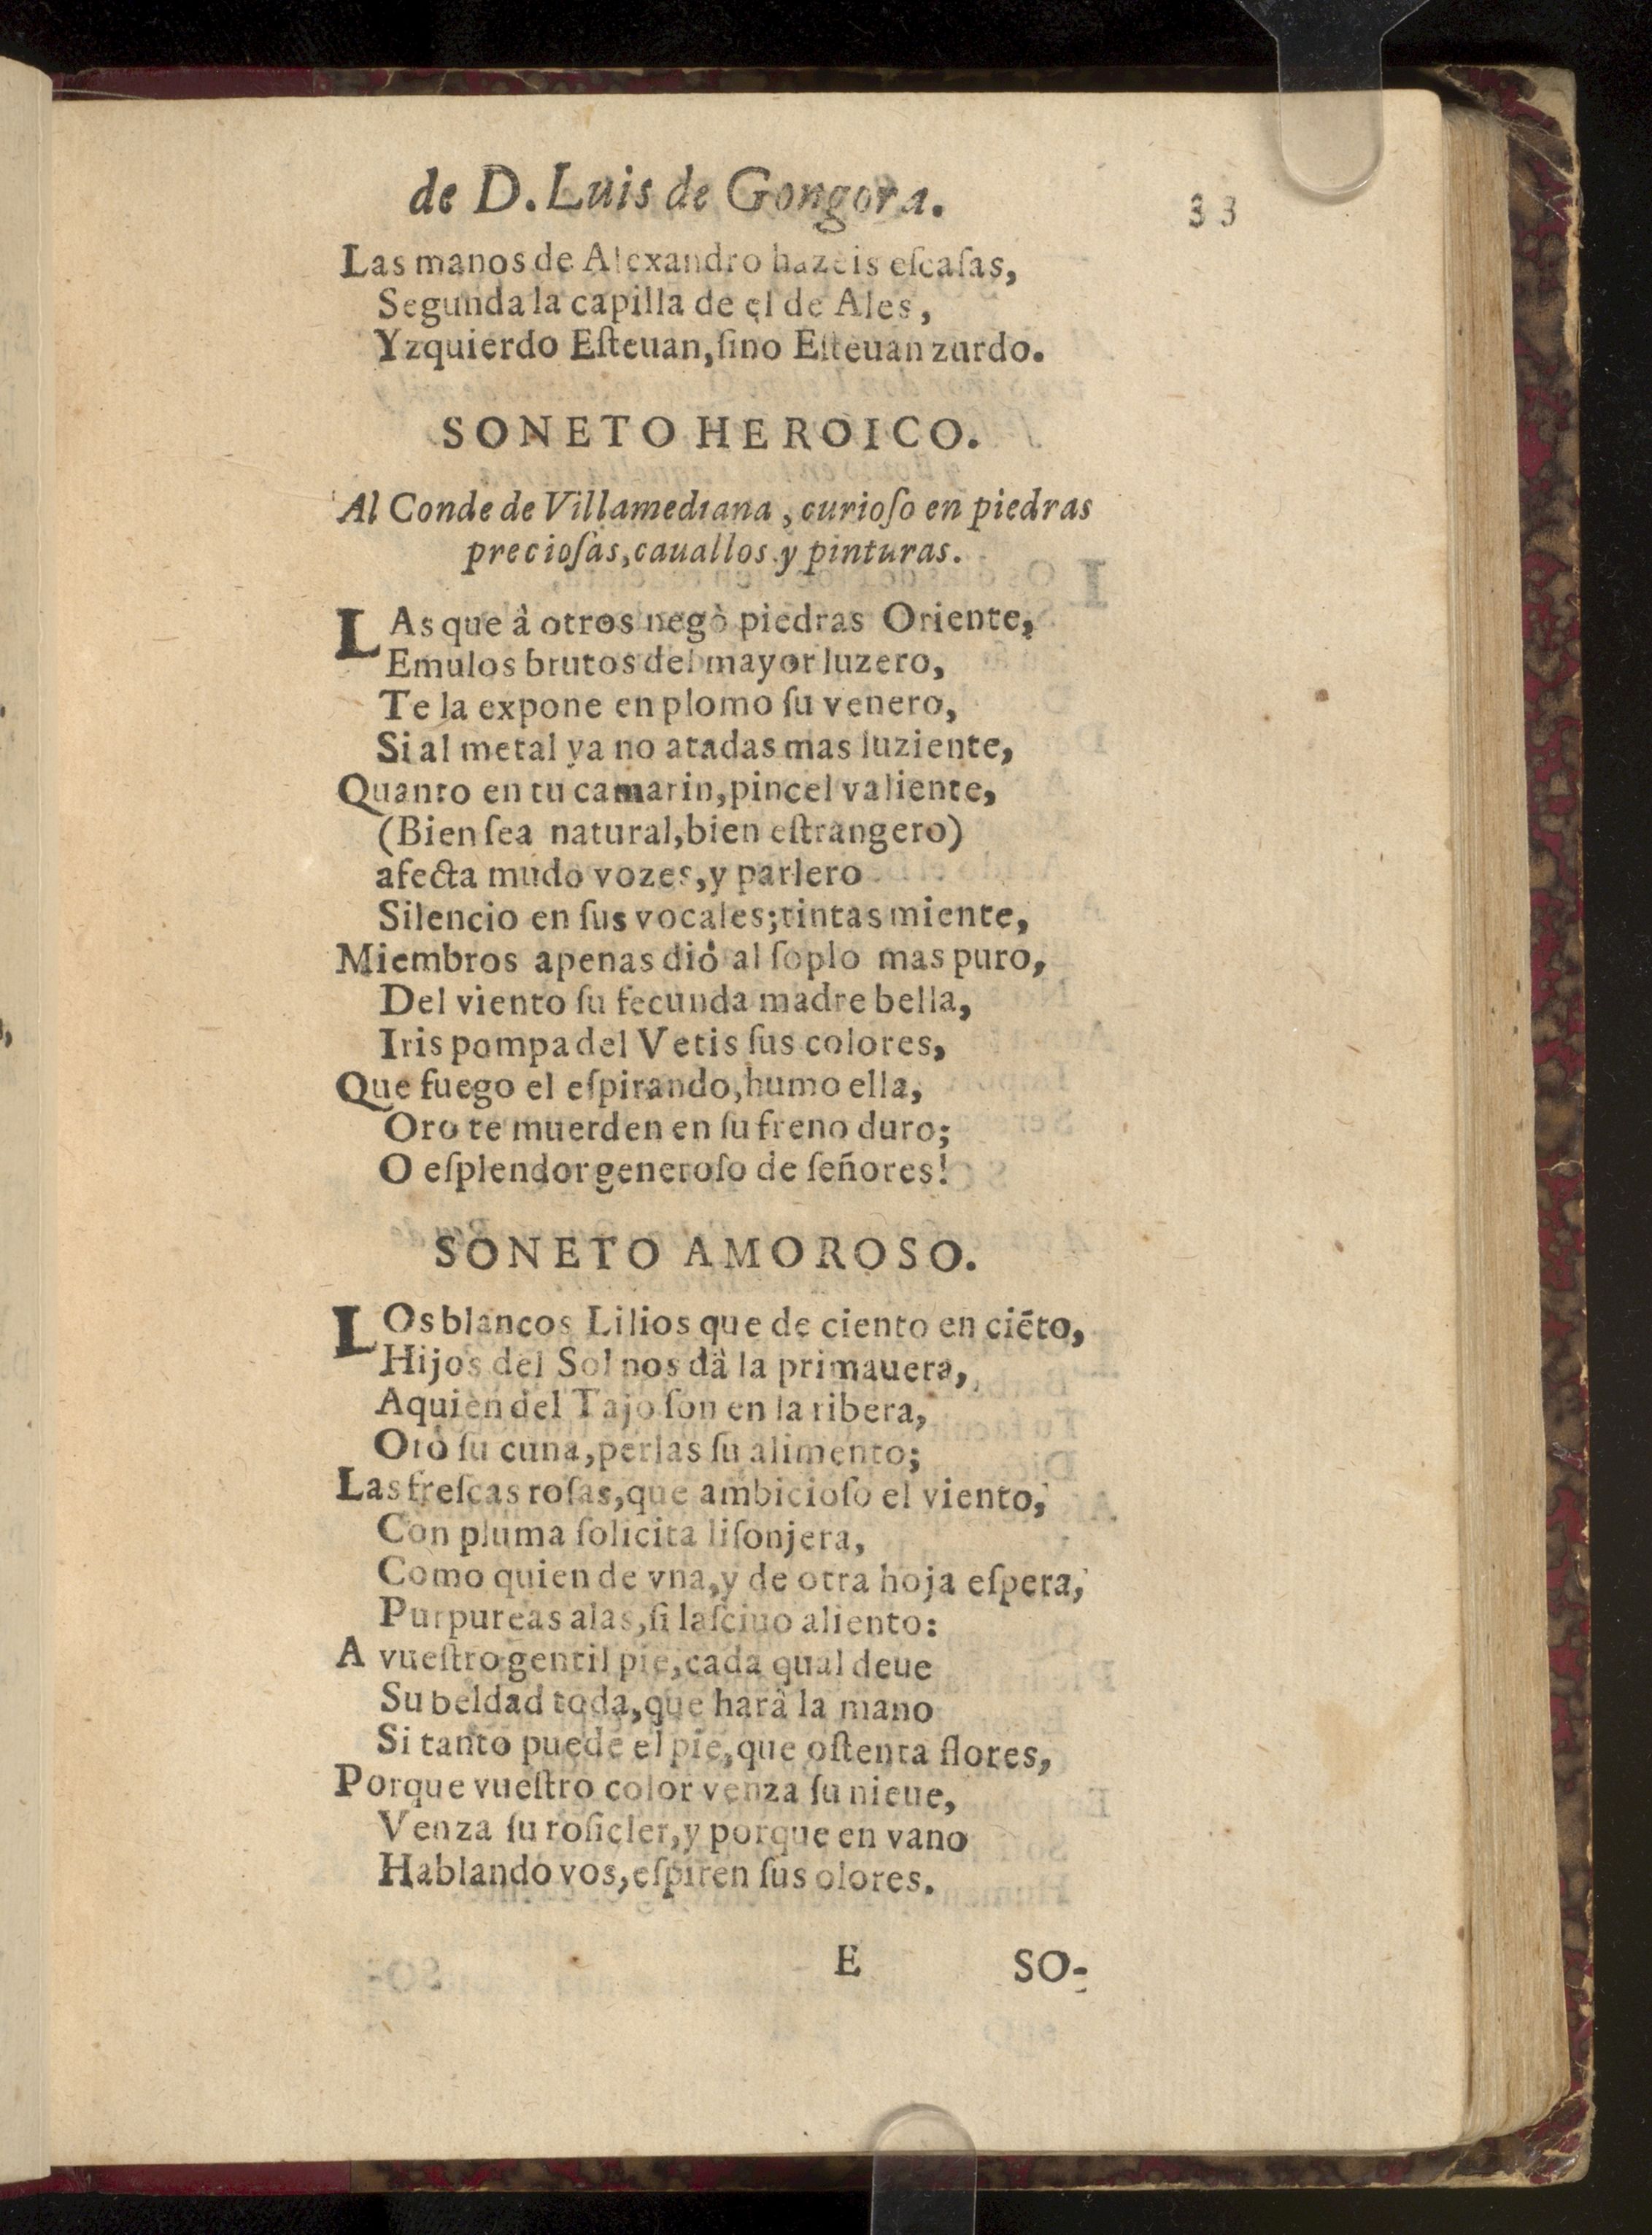 de D. Luis de Gongora. 33
Las manos de Alexandro hazeis eſcaſas,
Segunda la capilla de el de Ales,
Yzquierdo Eſteuan, ſino Eſteuan zurdo.
SONETO HEROICO.
Al Conde de Villamediana, curioſo en piedras
precioſas, cauallos y pinturas.
LAs que â otros negò piedras Oriente,
Emulos brutos del mayor luzero,
Te la expone en plomo ſu venero,
Si al metal ya no atadas mas luziente,
Quanto en tu camarin, pincel valiente,
(Bien ſea natural, bien eſtrangero)
afecta mudo vozes, y parlero
Silencio en ſus vocales; tintas miente,
Miembros apenas diò al ſoplo mas puro,
Del viento ſu fecunda madre bella,
Iris pompa del Vetis ſus colores,
Que fuego el eſpirando, humo ella,
Oro te muerden en ſu freno duro;
O eſplendor generoſo de ſeñores!
SONETO AMOROSO.
LOs blancos Lilios que de ciento en ciẽto,
Hijos del Sol nos dà la primauera,
Aquien del Tajo ſon en la ribera,
Oro ſu cuna, perlas ſu alimento;
Las freſcas roſas, que ambicioſo el viento,
Con pluma ſolicita liſonjera,
Como quien de vna, y de otra hoja eſpera,
Purpureas alas, ſi laſciuo aliento:
A vueſtro gentil pie, cada qual deue
Su beldad toda, que harà la mano
Si tanto puede el pie, que oſtenta flores,
Porque vueſtro color venza ſu nieue,
Venza ſu roſicler, y porque en vano
Hablando vos, eſpiren ſus olores.
E SO-